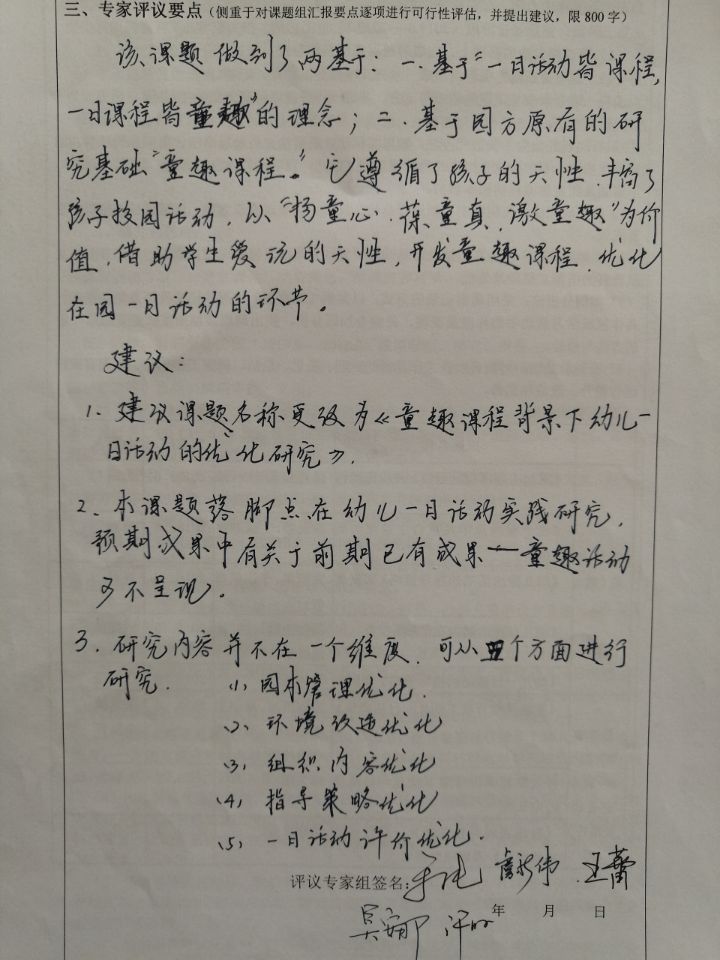 三、专家评议要点（侧重于对课题组汇报要点逐项进行可行性评估，并提出建议，限 800 字）
该课题做到了两基于：一.基于“一日活动皆课程，
一日课程皆童趣”的理念；二.基于园方原有的研
究基础“童趣课程。”它遵循了孩子的天性，丰富了
孩子校园活动，以“扬童心、葆童真、激童趣”为价
值，借助学生爱玩的天性，开发童趣课程，优化
在园一日活动的环节。
建议：
1. 建议课题名称更改为《童趣课程背景下幼儿一
日活动的优化研究》.
2. 本课题落脚点在幼儿一日活动实践研究，
预期成果中有关于前期已有成果一童趣活动
可不呈现。
3. 研究内容并不在一个维度，可从五个方面进行
研究.
(1) 园本管理优化.
(2) 环境改造优化
(3) 组织内容优化
(4) 指导策略优化
(5) 一日活动评价优化.
评议专家组签名: 王蕾
年 月 日